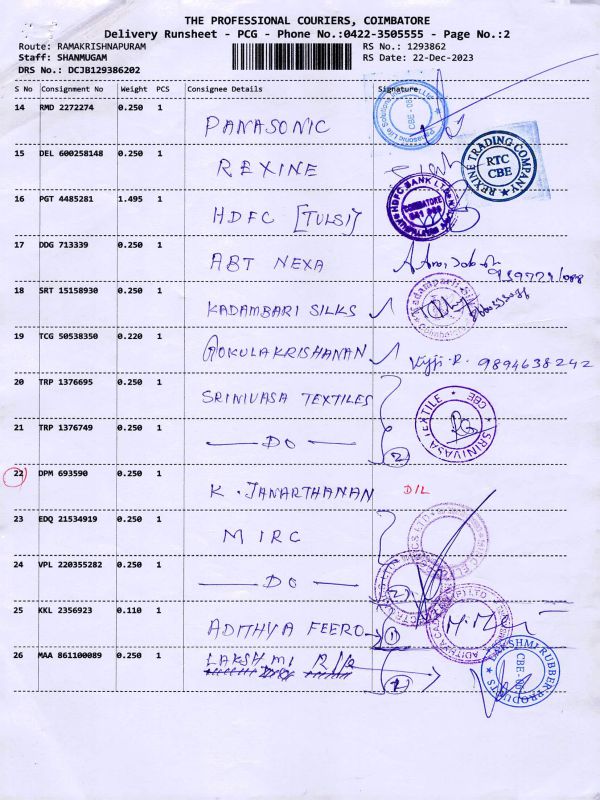 THE PROFESSIONAL COURIERS, COIMBATORE
Delivery Runsheet - PCG - Phone No.:0422-3505555 - Page No.:2
Route: RAMAKRISHNAPURAM RS No.: 1293862
Staff: SHANMUGAM RS Date: 22-Dec-2023
DRS No.: DCJB129386202
S No Consignment No Weight PCS Consignee Details Signature
14 RMD 2272274 0.250 1 PANASONIC
15 DEL 600258148 0.250 1 REXINE
REXINE TRADING COMPANY RTC CBE
16 PGT 4485281 1.495 1 HDFC [TULSI]
HDFC BANK LTD COIMBATORE
17 DDG 713339 0.250 1 ABT NEXA
18 SRT 15158930 0.250 1 KADAMBARI SILKS
19 TCG 50538350 0.220 1 GOKULAKRISHANAN Vijji.R. 9894638242
20 TRP 1376695 0.250 1 SRINIVASA TEXTILES
SRINIVASA TEXTILE CBE
21 TRP 1376749 0.250 1 DO 2
22 DPM 693590 0.250 1 K. JANARTHANAN D/L
23 EDQ 21534919 0.250 1 MIRC
24 VPL 220355282 0.250 1 DO 2
25 KKL 2356923 0.110 1 ADITHYA FEERO 1
26 MAA 861100089 0.250 1 LAKSHMI R/R 1
LAKSHMI RUBBER PRODUCTS CBE